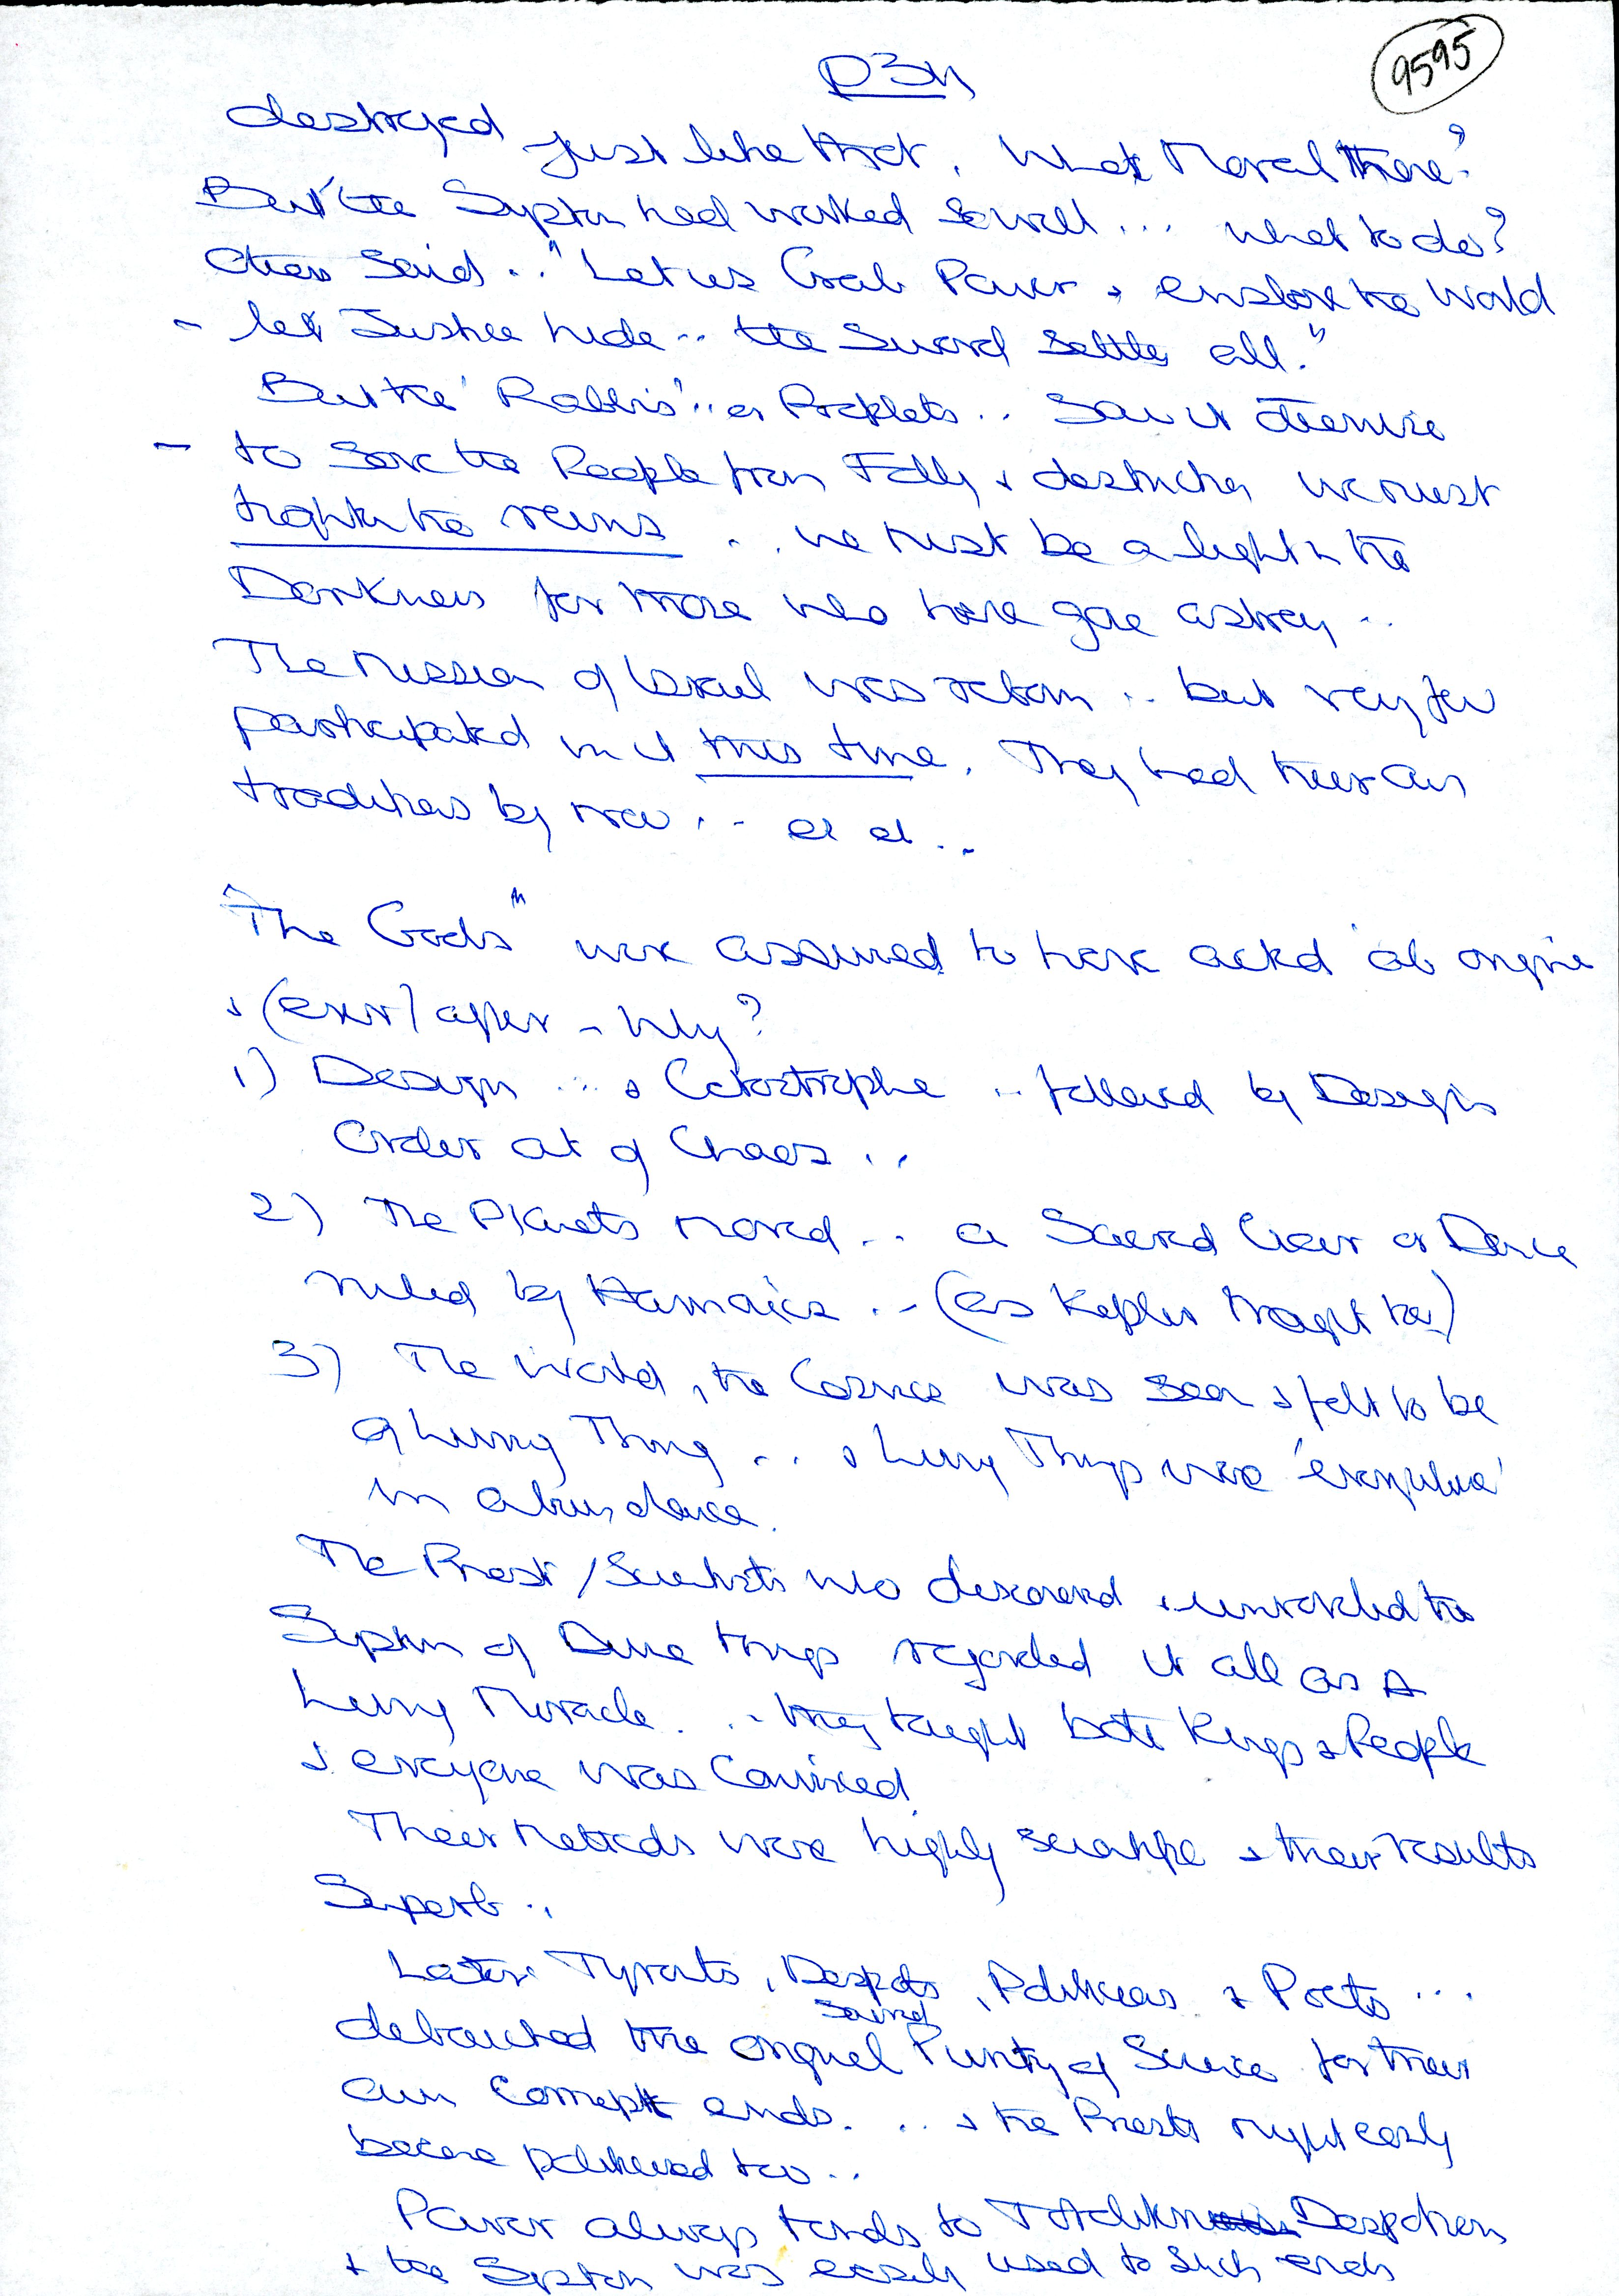 9595
destroyed just like that. What Moral there?
But the System had worked so well ... what to do?
Others said .. "Let us Grab Power & enslave the World
- let Justice hide .. the Sword settles all."
But the 'Rabbis' .. or Prophets .. saw it otherwise
- to save the People from Folly & destruction we must
tighten the reins .. we must be a light in the
Darkness for those who have gone astray ..
The Mission of Israel was reborn .. but very few
participated in it this time. They had their own
traditions by now .. et al ..
"The Gods" were assumed to have acted ab origine
& (ever) after - Why?
1) Design ... & Catastrophe .. followed by Design
Order out of Chaos ..
2) The Planets moved .. a Sacred Choir or Dance
ruled by Harmonics .. (as Kepler thought too)
3) The World, the Cosmos was seen & felt to be
a Living Thing .. & Living Things were
in abundance.
The Priest / Scientists who discovered & unravelled the
System of Divine things regarded it all as A
Living Miracle .. they taught both Kings & People
& everyone was convinced
Their Methods were highly scientific & their results
Superb ..
Later Tyrants, Despots, Politicians & Poets ...
debauched the original Sacred Purity of Science for their
own corrupt ends. .. & the Priests might easily
become politicised too ..
Power always tends to Despotism
& the System was easily used to such ends